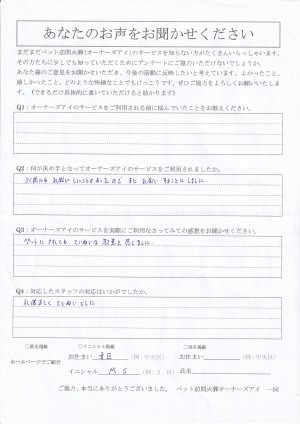 あなたのお声をお聞かせください
まだまだペット訪問火葬(オーナーズアイ)のサービスを知らない方がたくさんいらっしゃいます。
その方たちに少しでも知っていただくためにアンケートにご協力いただけないでしょうか。
あなた様のご意見をお聞かせいただき、今後の活動に反映したいと考えています。よかったこと、
嬉しかったこと、どのような些細なことでもけっこうです。ぜひご協力をよろしくお願いいたしま
す。(できるだけ具体的に書いていただけると助かります)
Q1:オーナーズアイのサービスをご利用される前に悩んでいたことをお教えください。
Q2:何が決め手となってオーナーズアイのサービスをご利用されましたか。
以前にも お願い したことがあったので また お願い することにしました。
Q3:オーナーズアイのサービスを実際にご利用なさってみての感想をお聞かせください。
ペットに対しても ていねいな 感じました。
Q4:対応したスタッフの対応はいかがでしたか。
礼儀正しく ていねい でした
□匿名掲載 □イニシャル掲載 □実名掲載
ホームページでご紹介
お住まい (例:中央区) お住まい (例:中央区)
イニシャル M.S (例:J.H) 氏名
ご協力、本当にありがとうございました。 ペット訪問火葬オーナーズアイ 一同